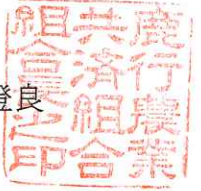 良
鹿行農業
共済組合
組合長之印